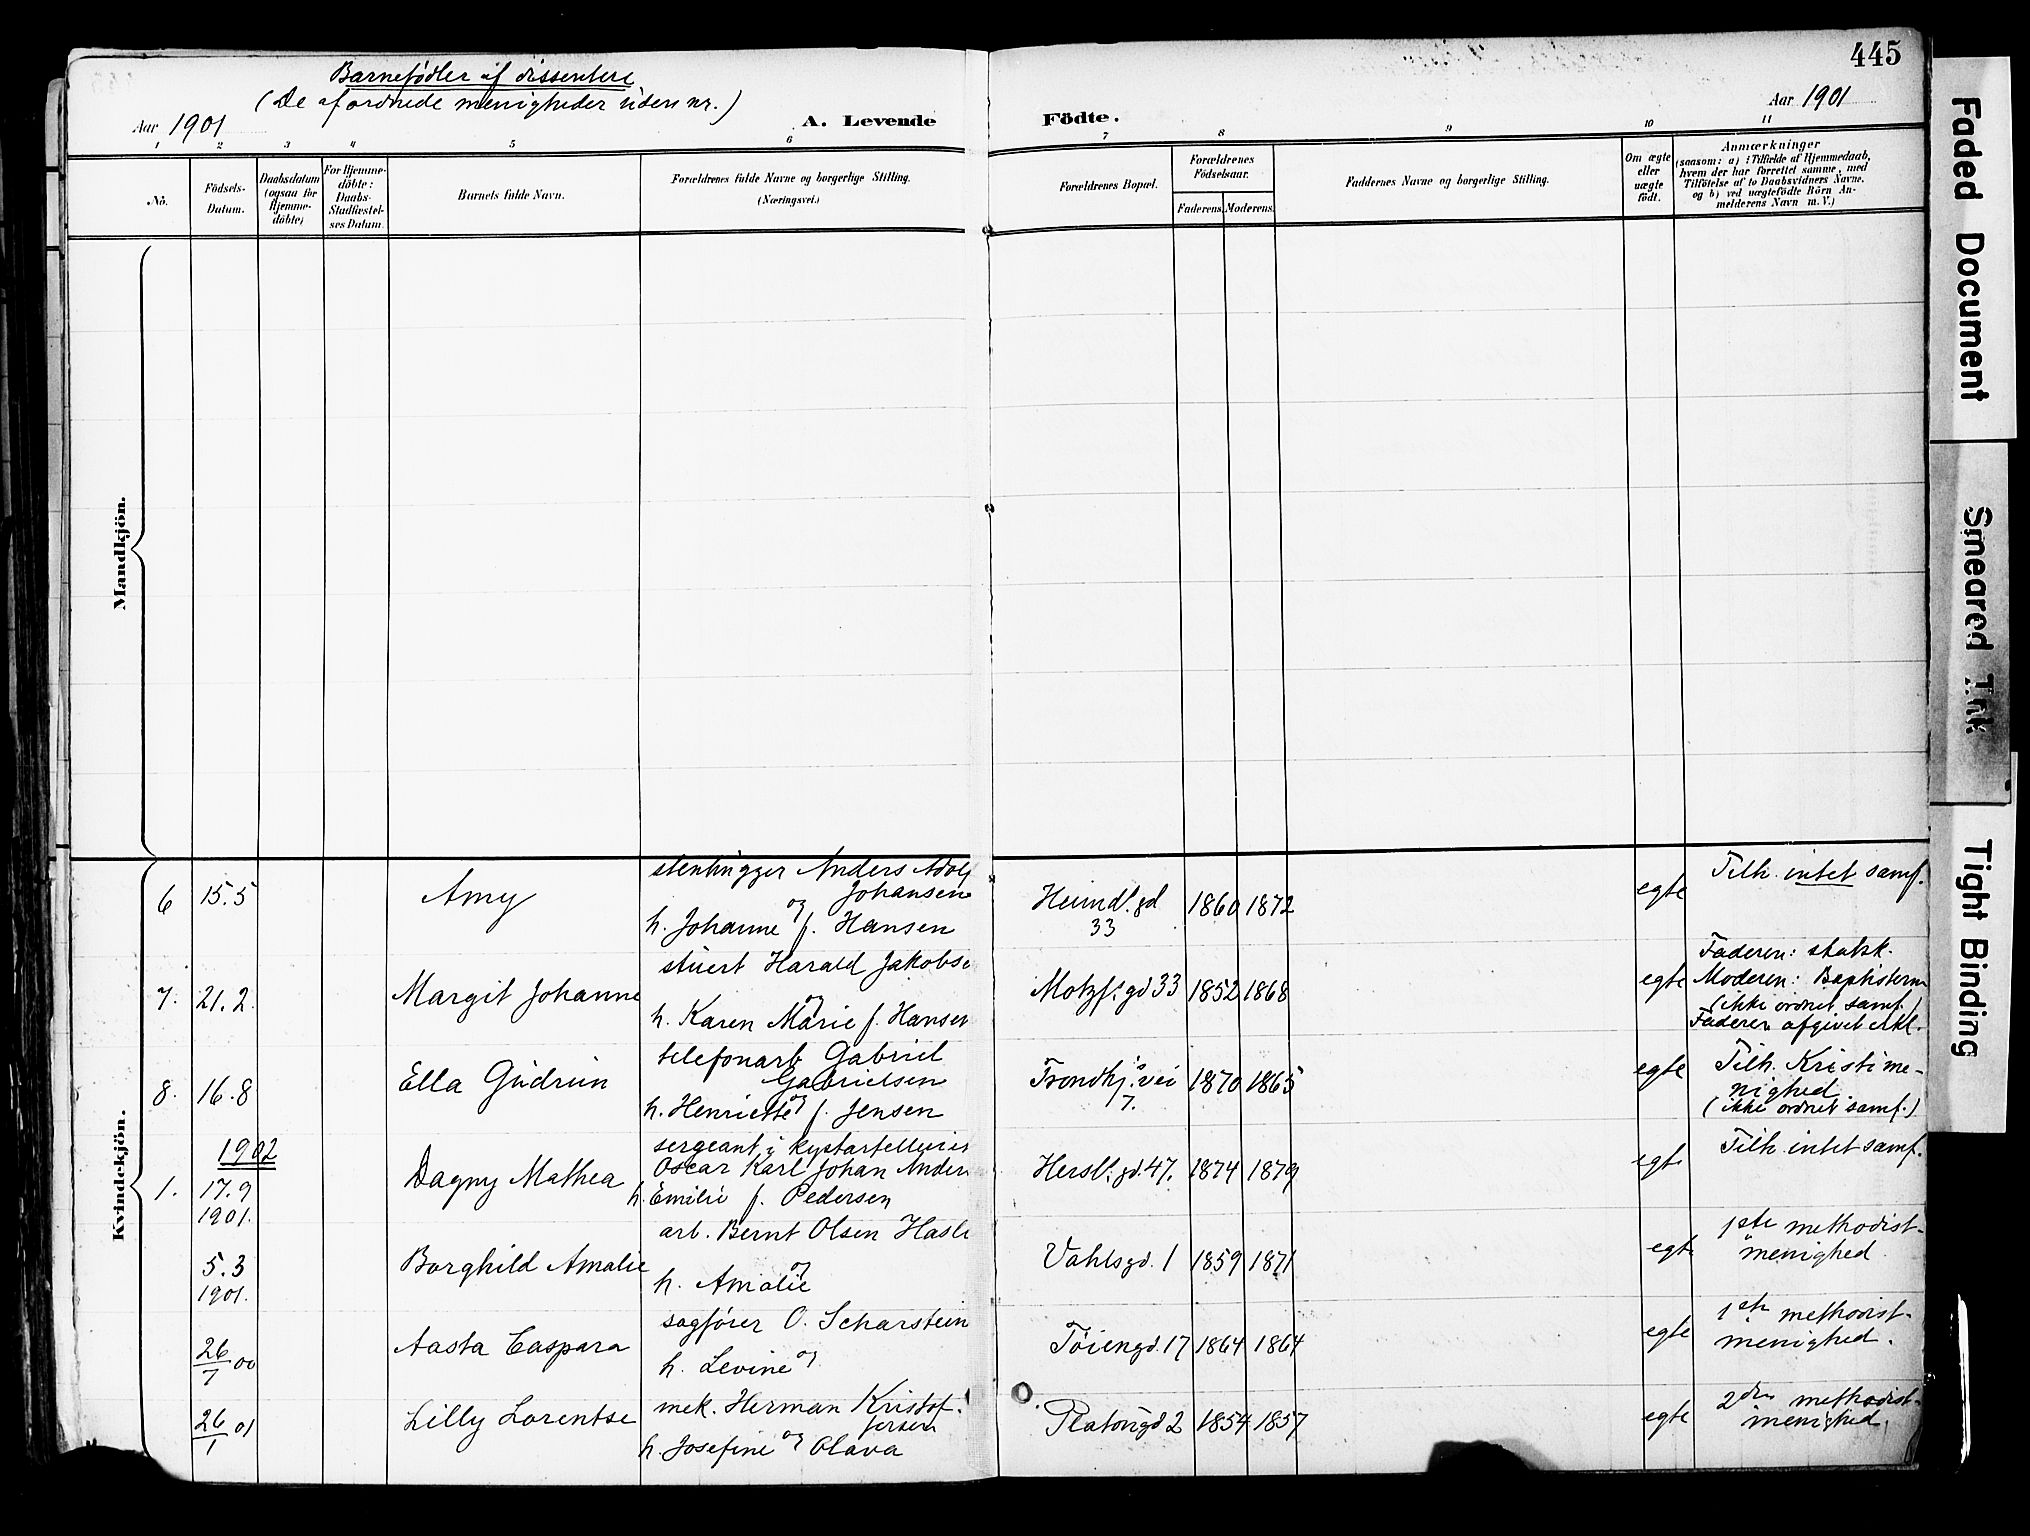 445
Barnefødler af dissentere
(De af ordnede menigheder uden nr.)
Aar 1901
A. Levende Födte.
Aar 1901
1 2 3 4 5 6 7 8 9 10 11
No.
Födsels-
Datum.
Daabsdatum
(ogsaa for
Hjemme-
döbte)
For Hjemme-
döbte:
Daabs-
Stadfæstel-
ses Datum.
Barnets fulde Navn.
Forældrenes fulde Navne og borgerlige Stilling.
(Næringsvei.)
Forældrenes Bopæl.
Forældrenes
Födselsaar.
Faderens. Moderens.
Faddernes Navne og borgerlige Stilling.
Om ægte
eller
uægte
födt.
Anmærkninger
(saasom: a) i Tilfælde af Hjemmedaab,
hvem der har forrettet samme, med
Tilföielse af to Daabsvidners Navne,
og b) ved uægtefödte Börn An-
melderens Navn m. V.)
Mandkjön.
Kvindekjön.
6 15.5 Amy
stenhugger Anders Adolf
Johansen
og
h. Johanne f. Hansen
Heimdl. gd
33
1860 1872 egte
Tilh. intet samf.
7. 21.2. Margit Johanne
stuert Harald Jakobse
og
h. Karen Marie f. Hansen
Motzf. gd 33 1852 1868 egte
Faderen: statsk.
Moderen: Baptistern
(ikke ordnet samf.)
Faderen afgivet erkl.
8. 16.8 Ella Gudrun
telefonarb Gabriel
Gabrielsen
og
h. Henriette f. Jensen
Trondhj.s vei
7.
1870 1865 egte
Tilh. Kristi me-
nighed
(ikke ordnet samf.)
1902
1. 17.9
1901.
Dagny Mathea
sergeant i kystartelleriet
Oscar Karl Johan Anders
h. Emilie f. Pedersen
Hersl. gd. 47. 1874 1879 egte
Tilh. intet samf.
5.3
1901.
Borghild Amalie
arb. Bernt Olsen Hasle
og
h. Amalie
Vahlsgd. 1 1859 1871 egte
1ste methodist-
menighed
26/7 00 Aasta Caspara
sagfører O. Scharstein
og
h. Levine
Tøiengd. 17 1864 1864 egte
1ste methodist-
menighed.
26/1 01 Lilly Lorentse
mek. Herman Kristof-
fersen
og
h. Josefine Olava
Platougd 2 1854 1857 egte
2den methodist-
menighed.
Faded Document
Smeared Ink
Tight Binding